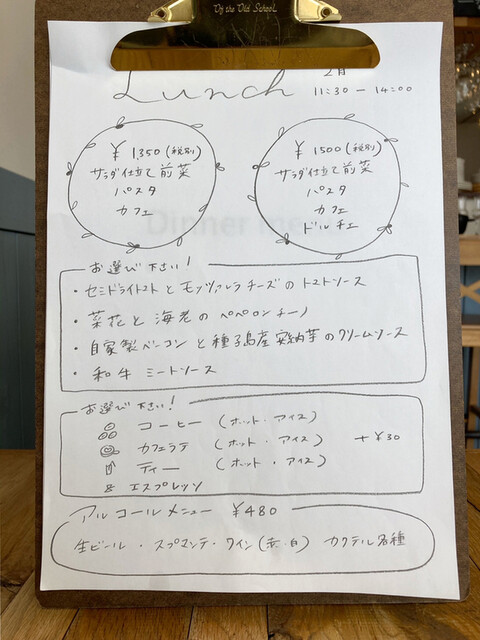 By the Old School
Lunch
2月
11:30 — 14:00
¥ 1,350 (税別)
サラダ仕立て前菜
パスタ
カフェ
¥ 1500 (税別)
サラダ仕立て前菜
パスタ
カフェ
ドルチェ
お選び下さい!
・セミドライトマトとモッツァレラチーズのトマトソース
・菜花と海老のペペロンチーノ
・自家製ベーコンと種子島産安納芋のクリームソース
・和牛ミートソース
お選び下さい!
コーヒー (ホット・アイス)
カフェラテ (ホット・アイス) +¥30
ティー (ホット・アイス)
エスプレッソ
アルコールメニュー ¥480
生ビール・スプマンテ・ワイン(赤・白) カクテル各種